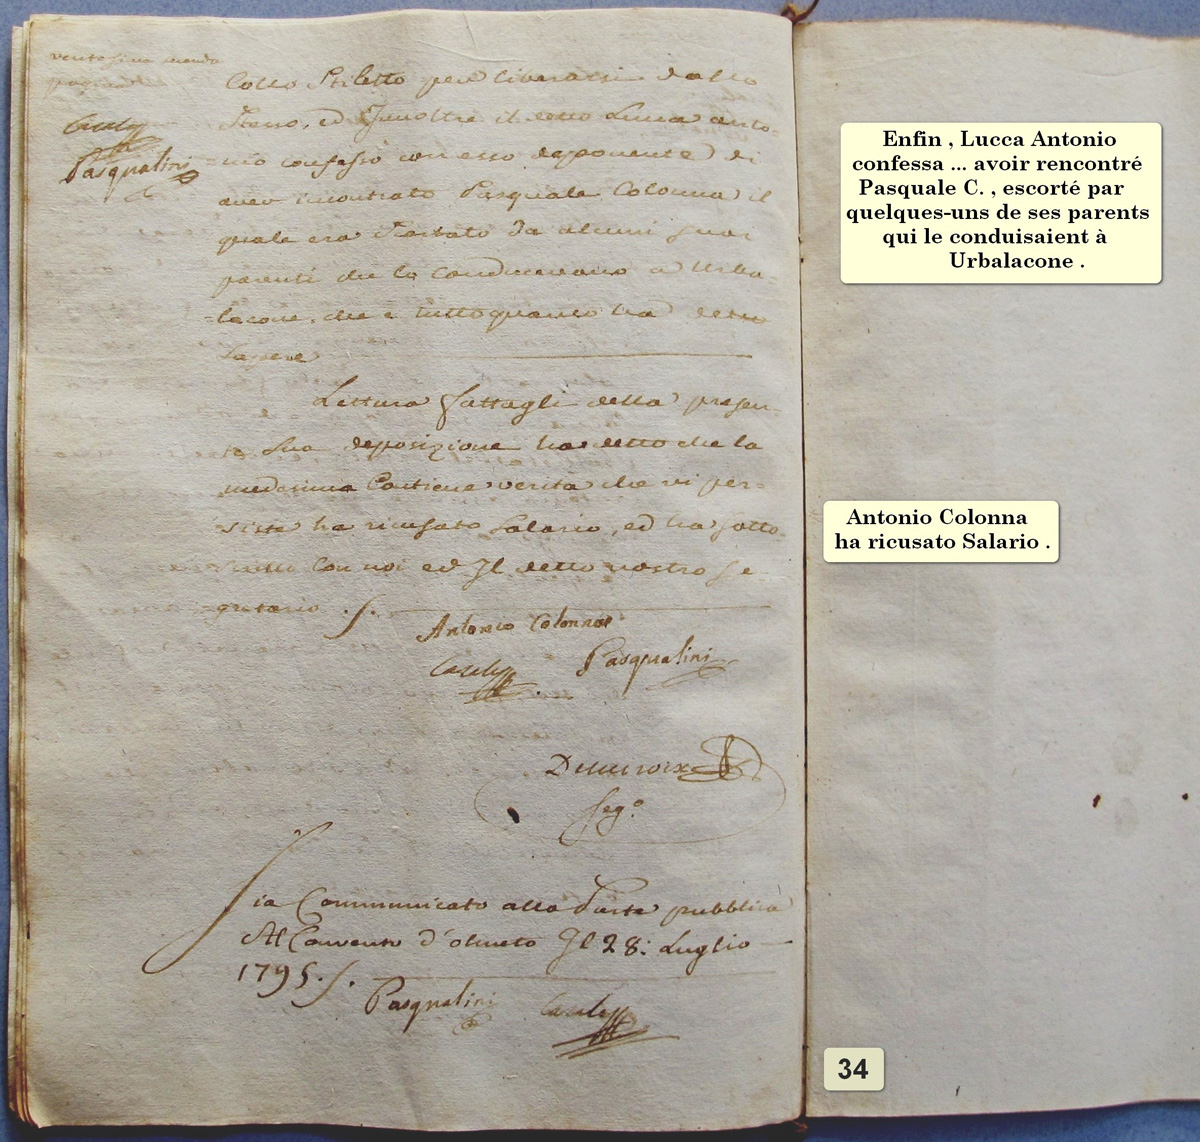 ventesima seconda
pagina
Casale
Pasqualini
Collo Stiletto per liberarsi dallo
stesso, ed Inoltre il detto Lucca Anto-
=nio confessò con esso deponente di
aver incontrato Pasquale Colonna il
quale era scortato da alcuni suoi
parenti che lo conducevano a Urba-
=lacone, che è tutto quanto ha detto
sapere
Lettura fattagli della presen-
te sua deposizione ha detto che la
medesima Contiene verità che vi per-
siste ha ricusato Salario, ed ha sotto-
scritto Con noi ed Il detto nostro Se-
gretario ./.
Antonio Colonna
Casale Pasqualini
Delacroix
Seg.º
Sia Communicato alla Parte pubblica
Al Convento d'olmeto Il 28: Luglio
1795 ./.
Pasqualini Casale
Enfin , Lucca Antonio
confessa ... avoir rencontré
Pasquale C. , escorté par
quelques-uns de ses parents
qui le conduisaient à
Urbalacone .
Antonio Colonna
ha ricusato Salario .
34